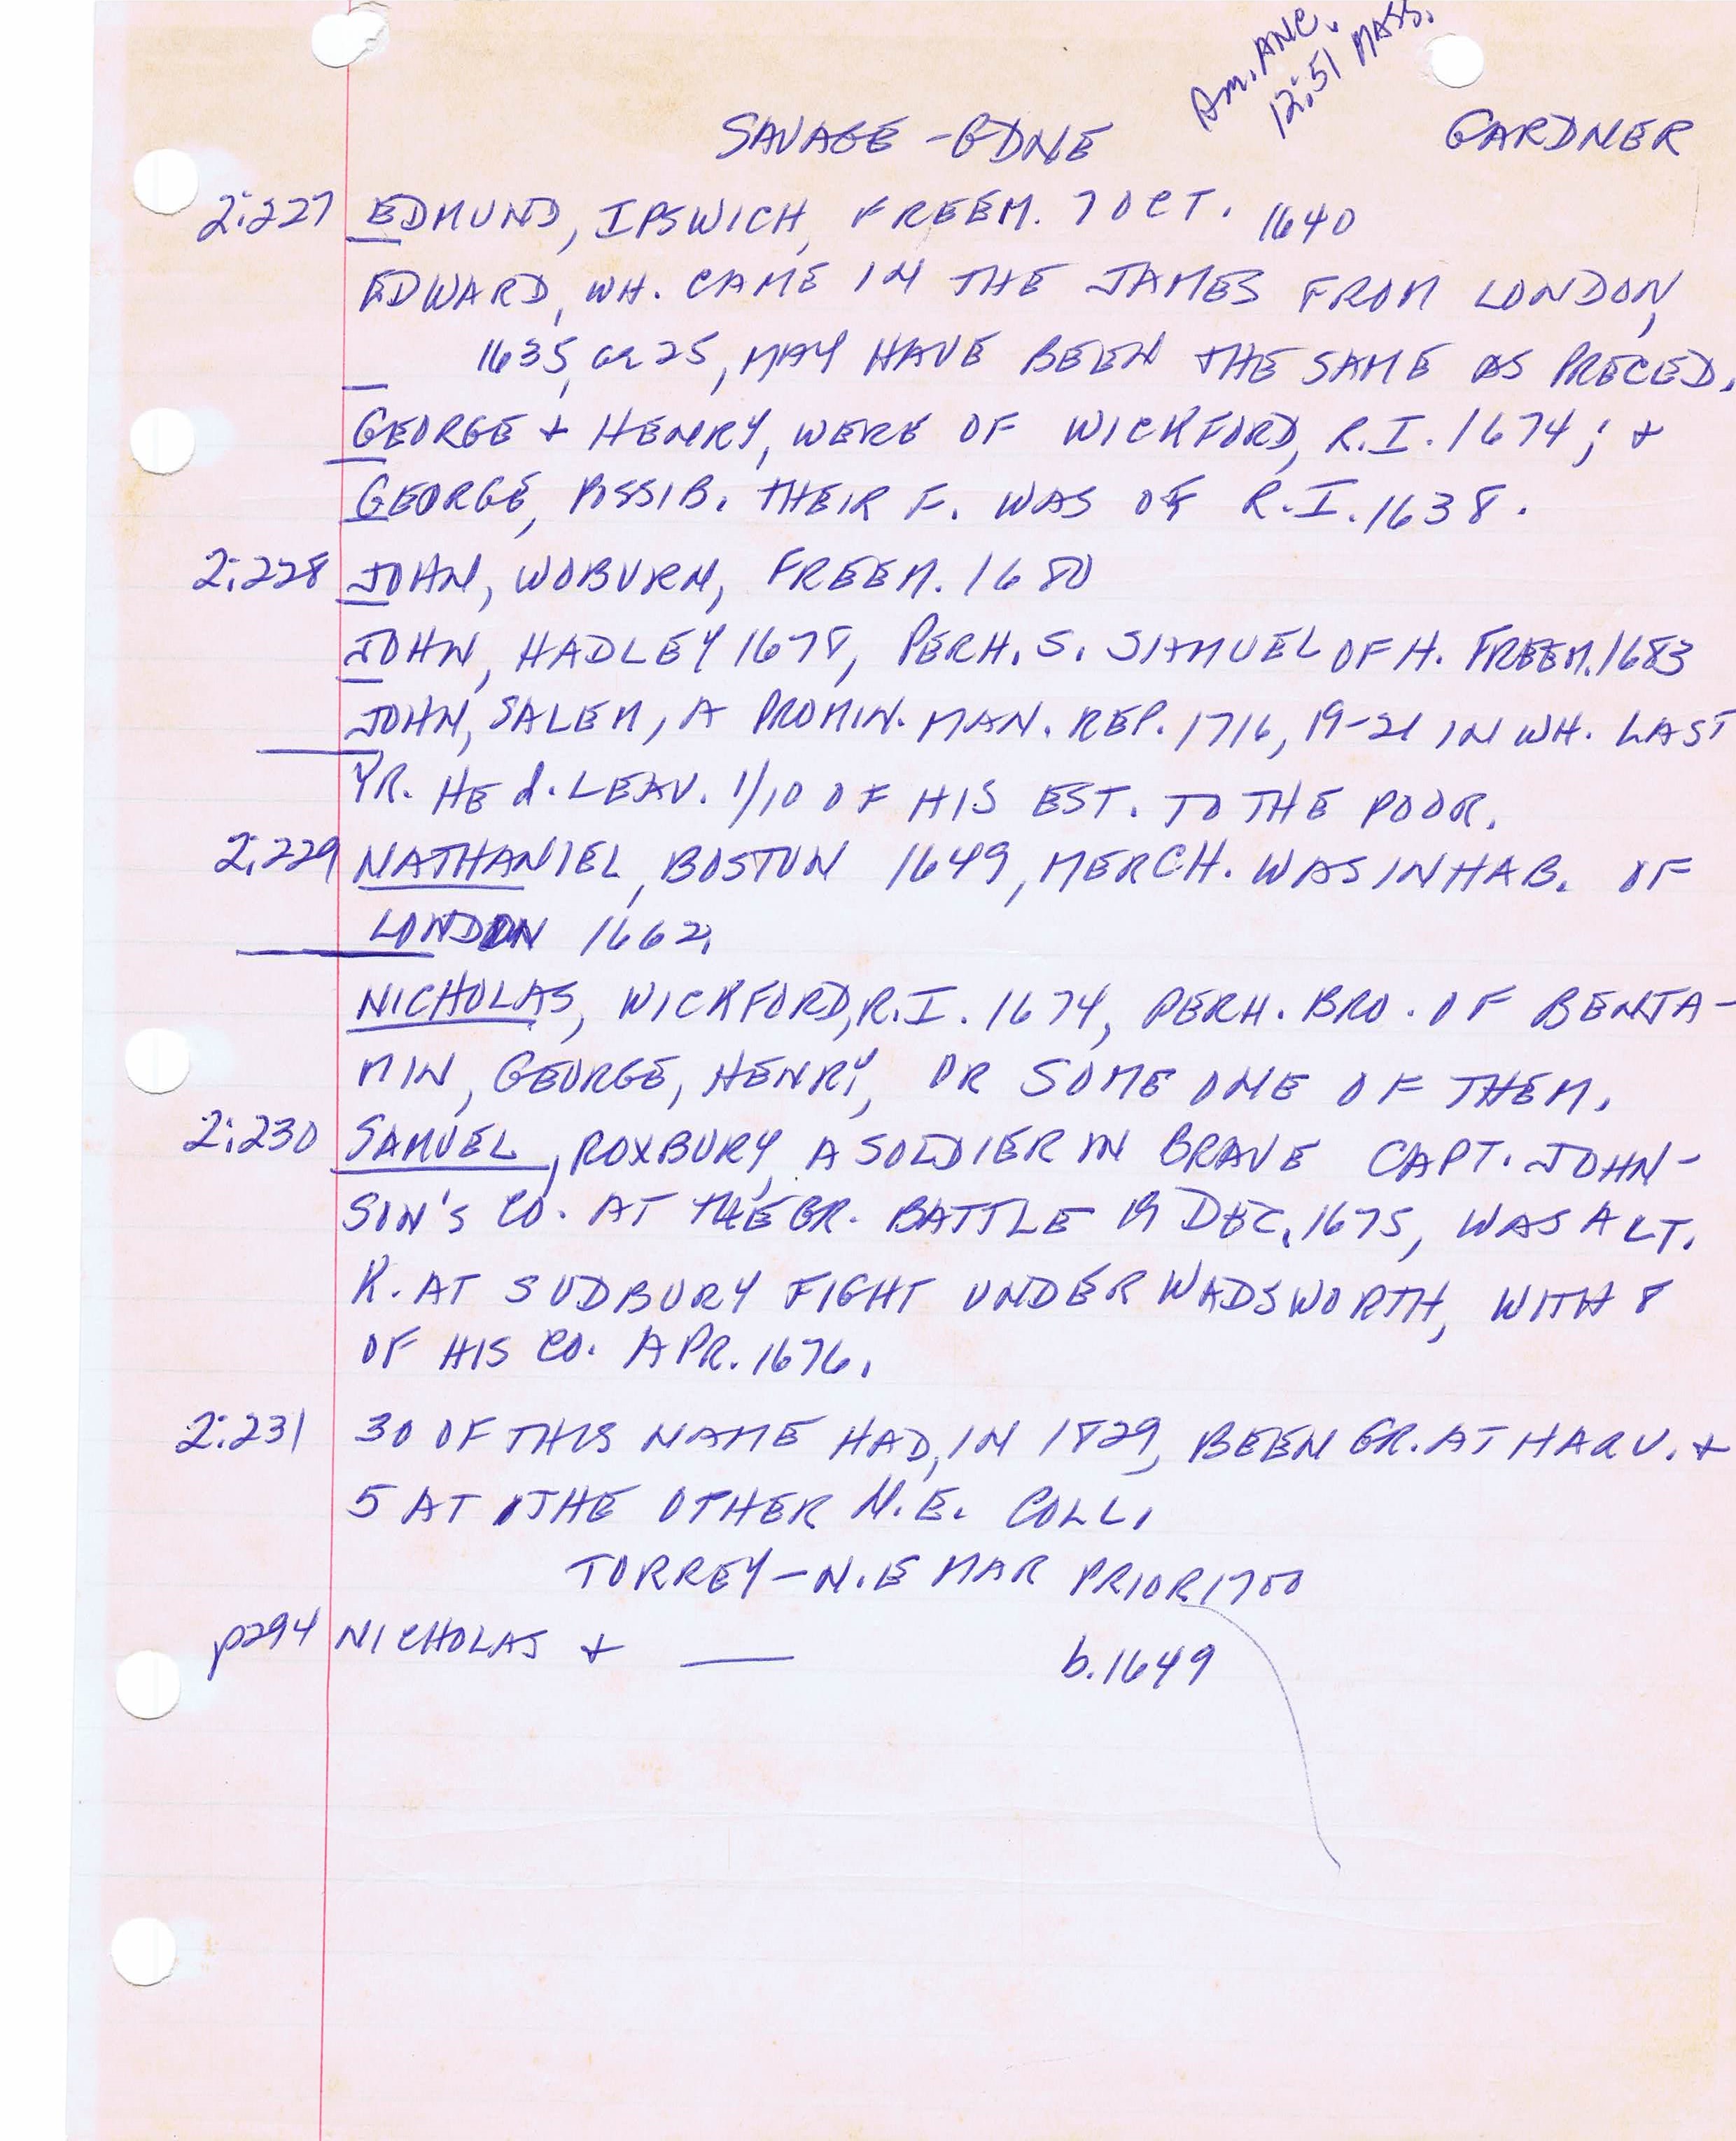 Am. ANC.
12:51 MASS.
SAVAGE - GDNE GARDNER
2:227 EDMUND, IPSWICH, FREEM. 7 OCT. 1640
EDWARD, WH. CAME IN THE JAMES FROM LONDON,
1635, ae 25, MAY HAVE BEEN THE SAME AS PRECED.
GEORGE + HENRY, WERE OF WICKFORD, R.I. 1674; +
GEORGE, POSSIB. THEIR F. WAS OF R.I. 1638.
2:228 JOHN, WOBURN, FREEM. 1680
JOHN, HADLEY 1678, PERH. S. SAMUEL OF H. FREEM. 1683
JOHN, SALEM, A PROMIN. MAN. REP. 1716, 19-21 IN WH. LAST
YR. HE d. LEAV. 1/10 OF HIS EST. TO THE POOR.
2:229 NATHANIEL, BOSTON 1649, MERCH. WAS INHAB. OF
LONDON 1662.
NICHOLAS, WICKFORD, R.I. 1674, PERH. BRO. OF BENJA-
MIN, GEORGE, HENRY, OR SOME ONE OF THEM.
2:230 SAMUEL, ROXBURY, A SOLDIER IN BRAVE CAPT. JOHN-
SON'S CO. AT THE GR. BATTLE 19 DEC. 1675, WAS A LT.
K. AT SUDBURY FIGHT UNDER WADSWORTH, WITH 8
OF HIS CO. APR. 1676.
2:231 30 OF THIS NAME HAD, IN 1829, BEEN GR. AT HARV. +
5 AT THE OTHER N.E. COLL.
TORREY - N.E MAR PRIOR 1700
p294 NICHOLAS + —— b. 1649